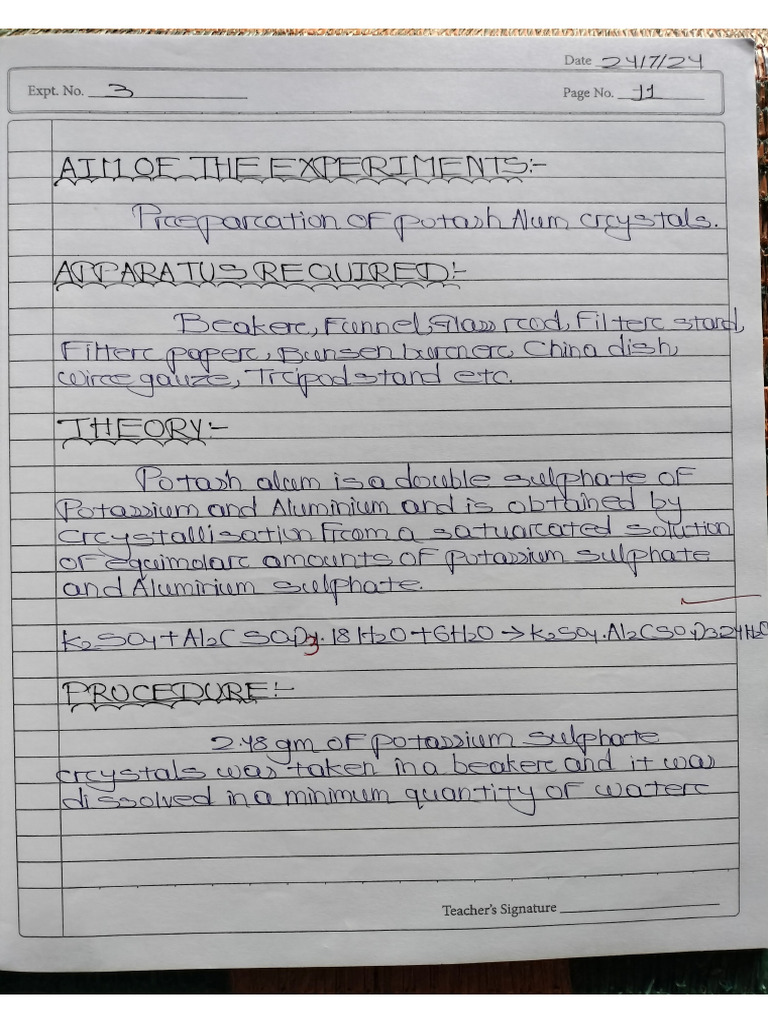 Date 24/7/24
Expt. No. 3
Page No. 11
AIM OF THE EXPERIMENTS:-
Preparation of potash Alum crystals.
APPARATUS REQUIRED:-
Beaker, Funnel, Glass rod, Filter stand,
Filter paper, Bunsen burner, China dish,
wire gauze, Tripod stand etc.
THEORY:-
Potash alum is a double sulphate of
Potassium and Aluminium and is obtained by
crystallisation from a satuarated solution
of equimolar amounts of potassium sulphate
and Aluminium sulphate.
K2SO4 + Al2(SO4)3. 18 H2O + 6H2O → K2SO4. Al2(SO4)3 24H2O
PROCEDURE:-
2.48 gm of potassium sulphate
crystals was taken in a beaker and it was
dissolved in a minimum quantity of water
Teacher's Signature